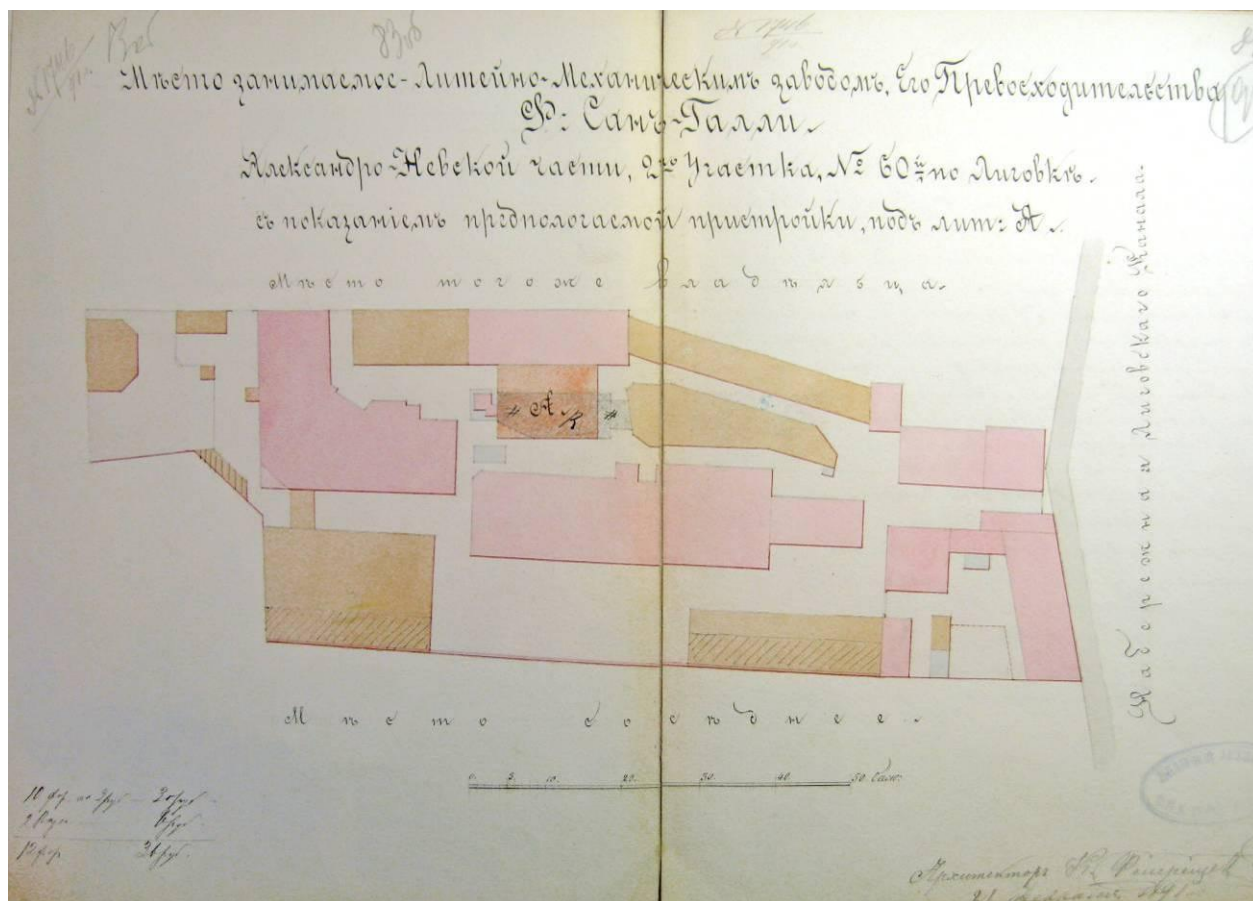 Мѣсто занимаемое Литейно-Механическимъ заводомъ, Его Превосходительства
Ф: Санъ-Галли.
Александро-Невской части, 2го Участка, № 60й по Лиговкѣ.
съ показаніемъ прѣдпологаемой пристройки, подъ лит: А.
Мѣсто тогоже владѣльца.
# А #
Набережная Лиговскаго Канала.
Мѣсто сосѣднее.
0. 5. 10. 20. 30. 40. 50. Саж:
Архитекторъ